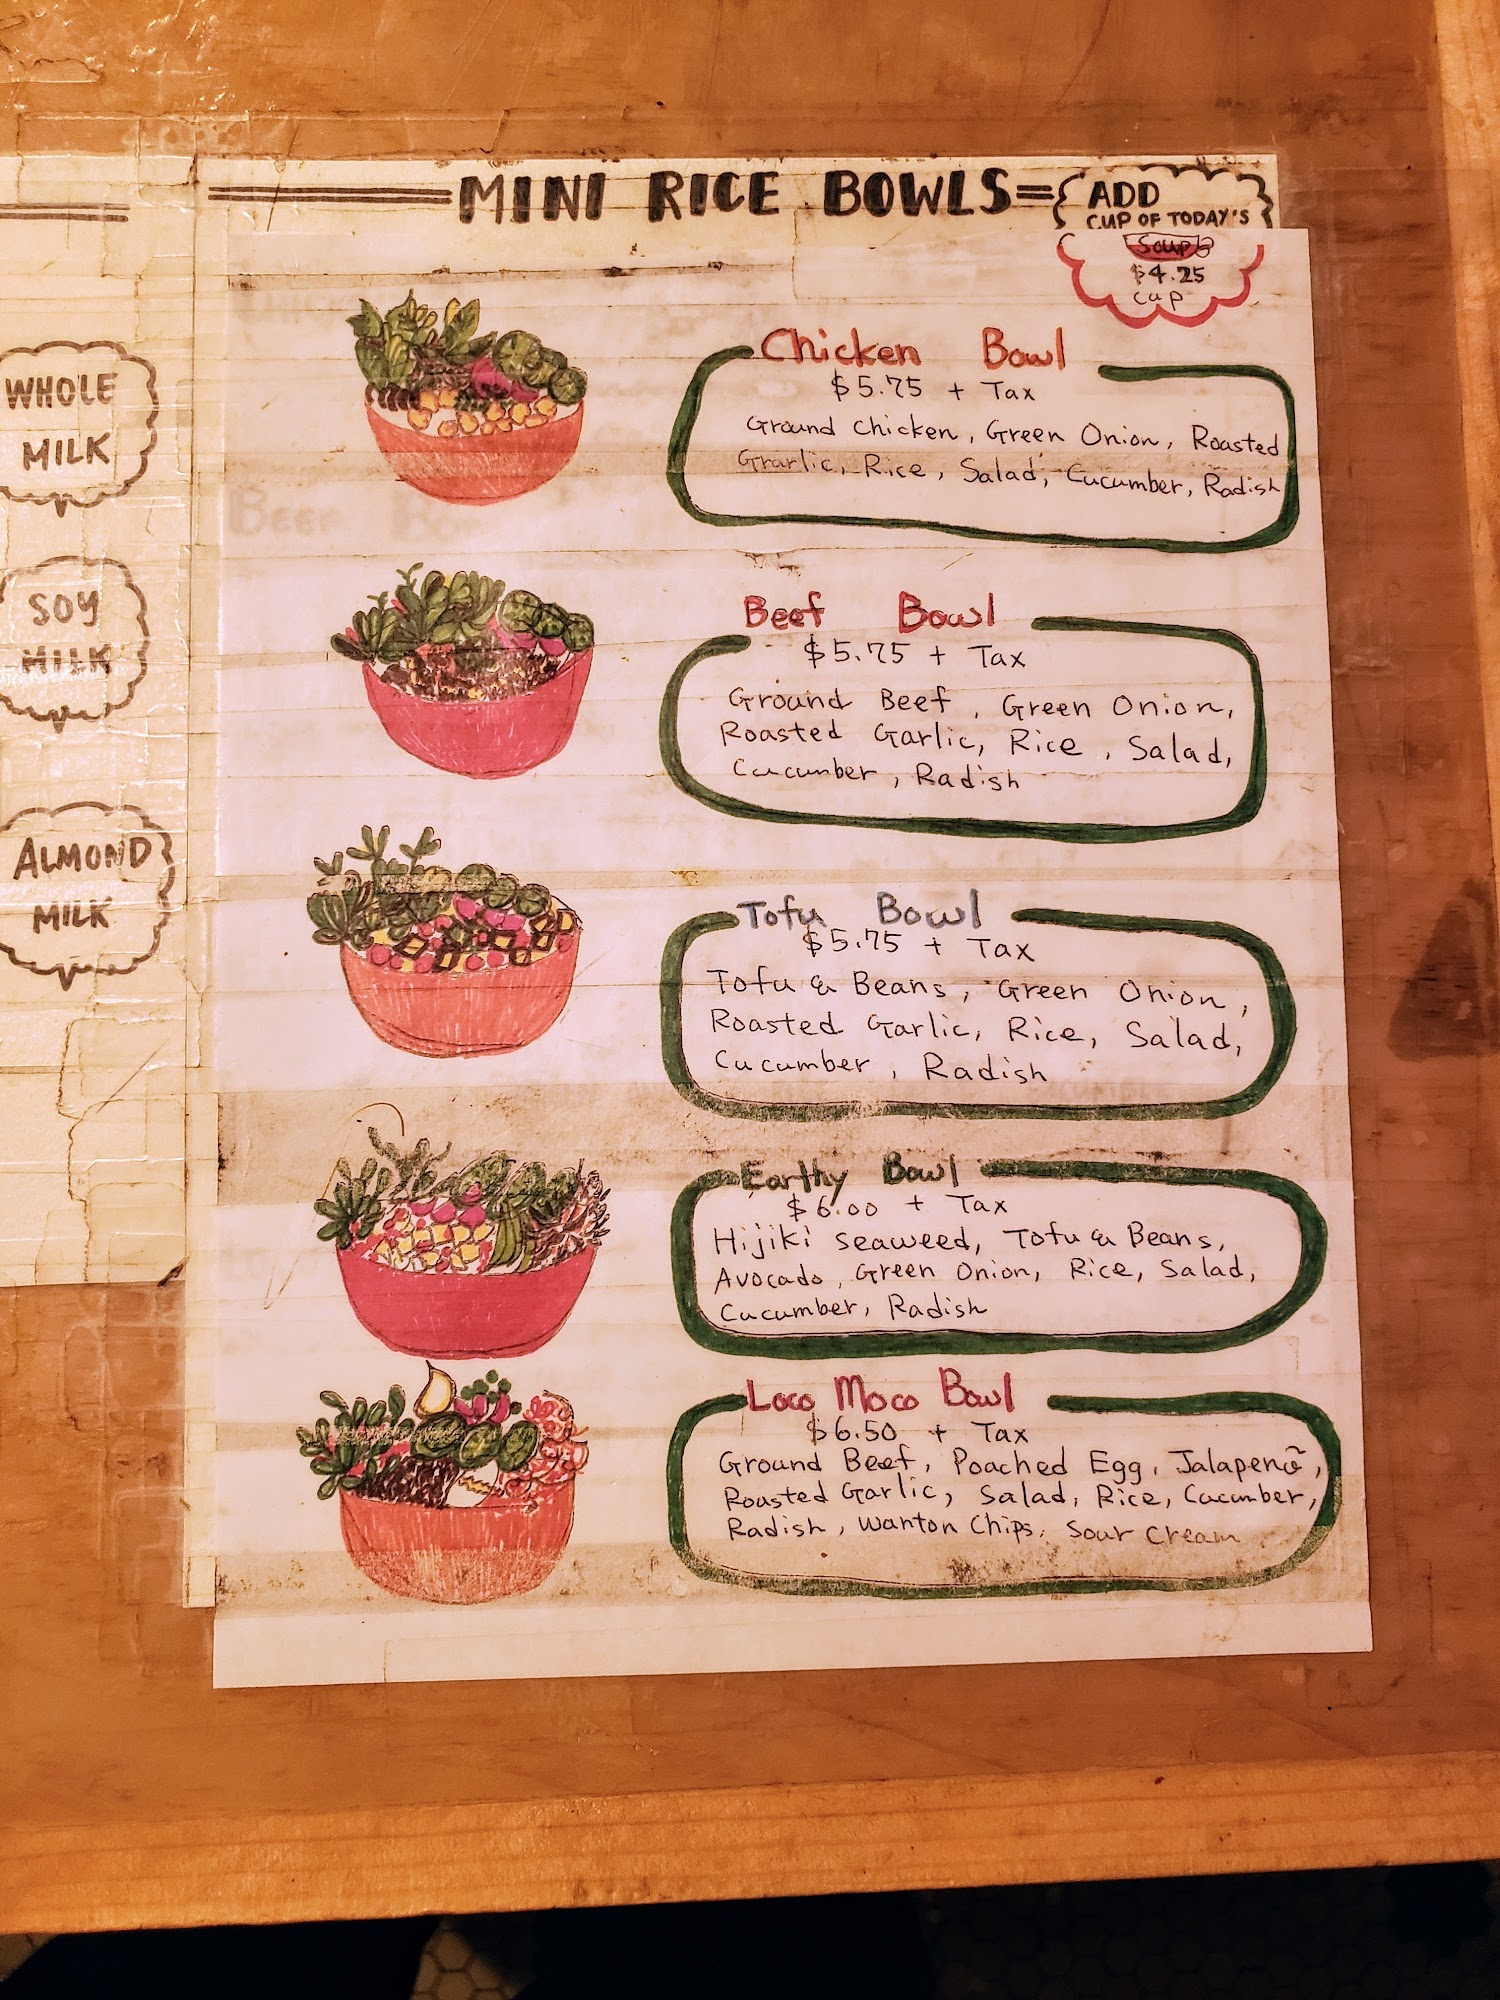 MINI RICE BOWLS
ADD
CUP OF TODAY'S
Soup
$4.25
cup
WHOLE
MILK
SOY
MILK
ALMOND
MILK
Chicken Bowl
$5.75 + Tax
Ground chicken, Green Onion, Roasted
Grarlic, Rice, Salad, Cucumber, Radish
Beef Bowl
$5.75 + Tax
Ground Beef, Green Onion,
Roasted Garlic, Rice, Salad,
Cucumber, Radish
Tofu Bowl
$5.75 + Tax
Tofu & Beans, Green Onion,
Roasted Garlic, Rice, Salad,
Cucumber, Radish
Earthy Bowl
$6.00 + Tax
Hijiki seaweed, Tofu & Beans,
Avocado, Green Onion, Rice, Salad,
Cucumber, Radish
Loco Moco Bowl
$6.50 + Tax
Ground Beef, Poached Egg, Jalapenõ,
Roasted Garlic, Salad, Rice, Cucumber,
Radish, Wanton Chips, Sour Cream